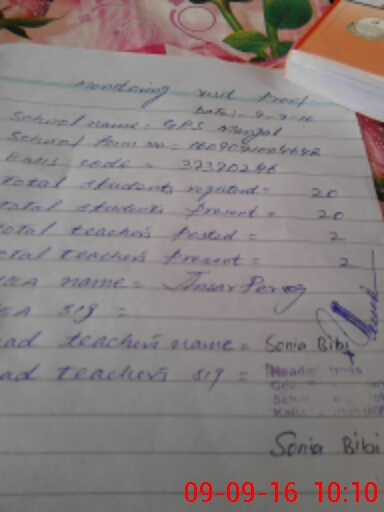 Monitoring visit Proof
Date:- 9-9-16
School name = GPS
School form no =
EMIS code = 37370246
Total students registered = 20
Total students Present = 20
otal teachers Posted = 2
otal teachers Present = 2
EA name = Ansar Pervez
EA sig =
ad teacher's name = Sonia Bibi
ad teacher's sig =
Sonia Bibi
09-09-16 10:10